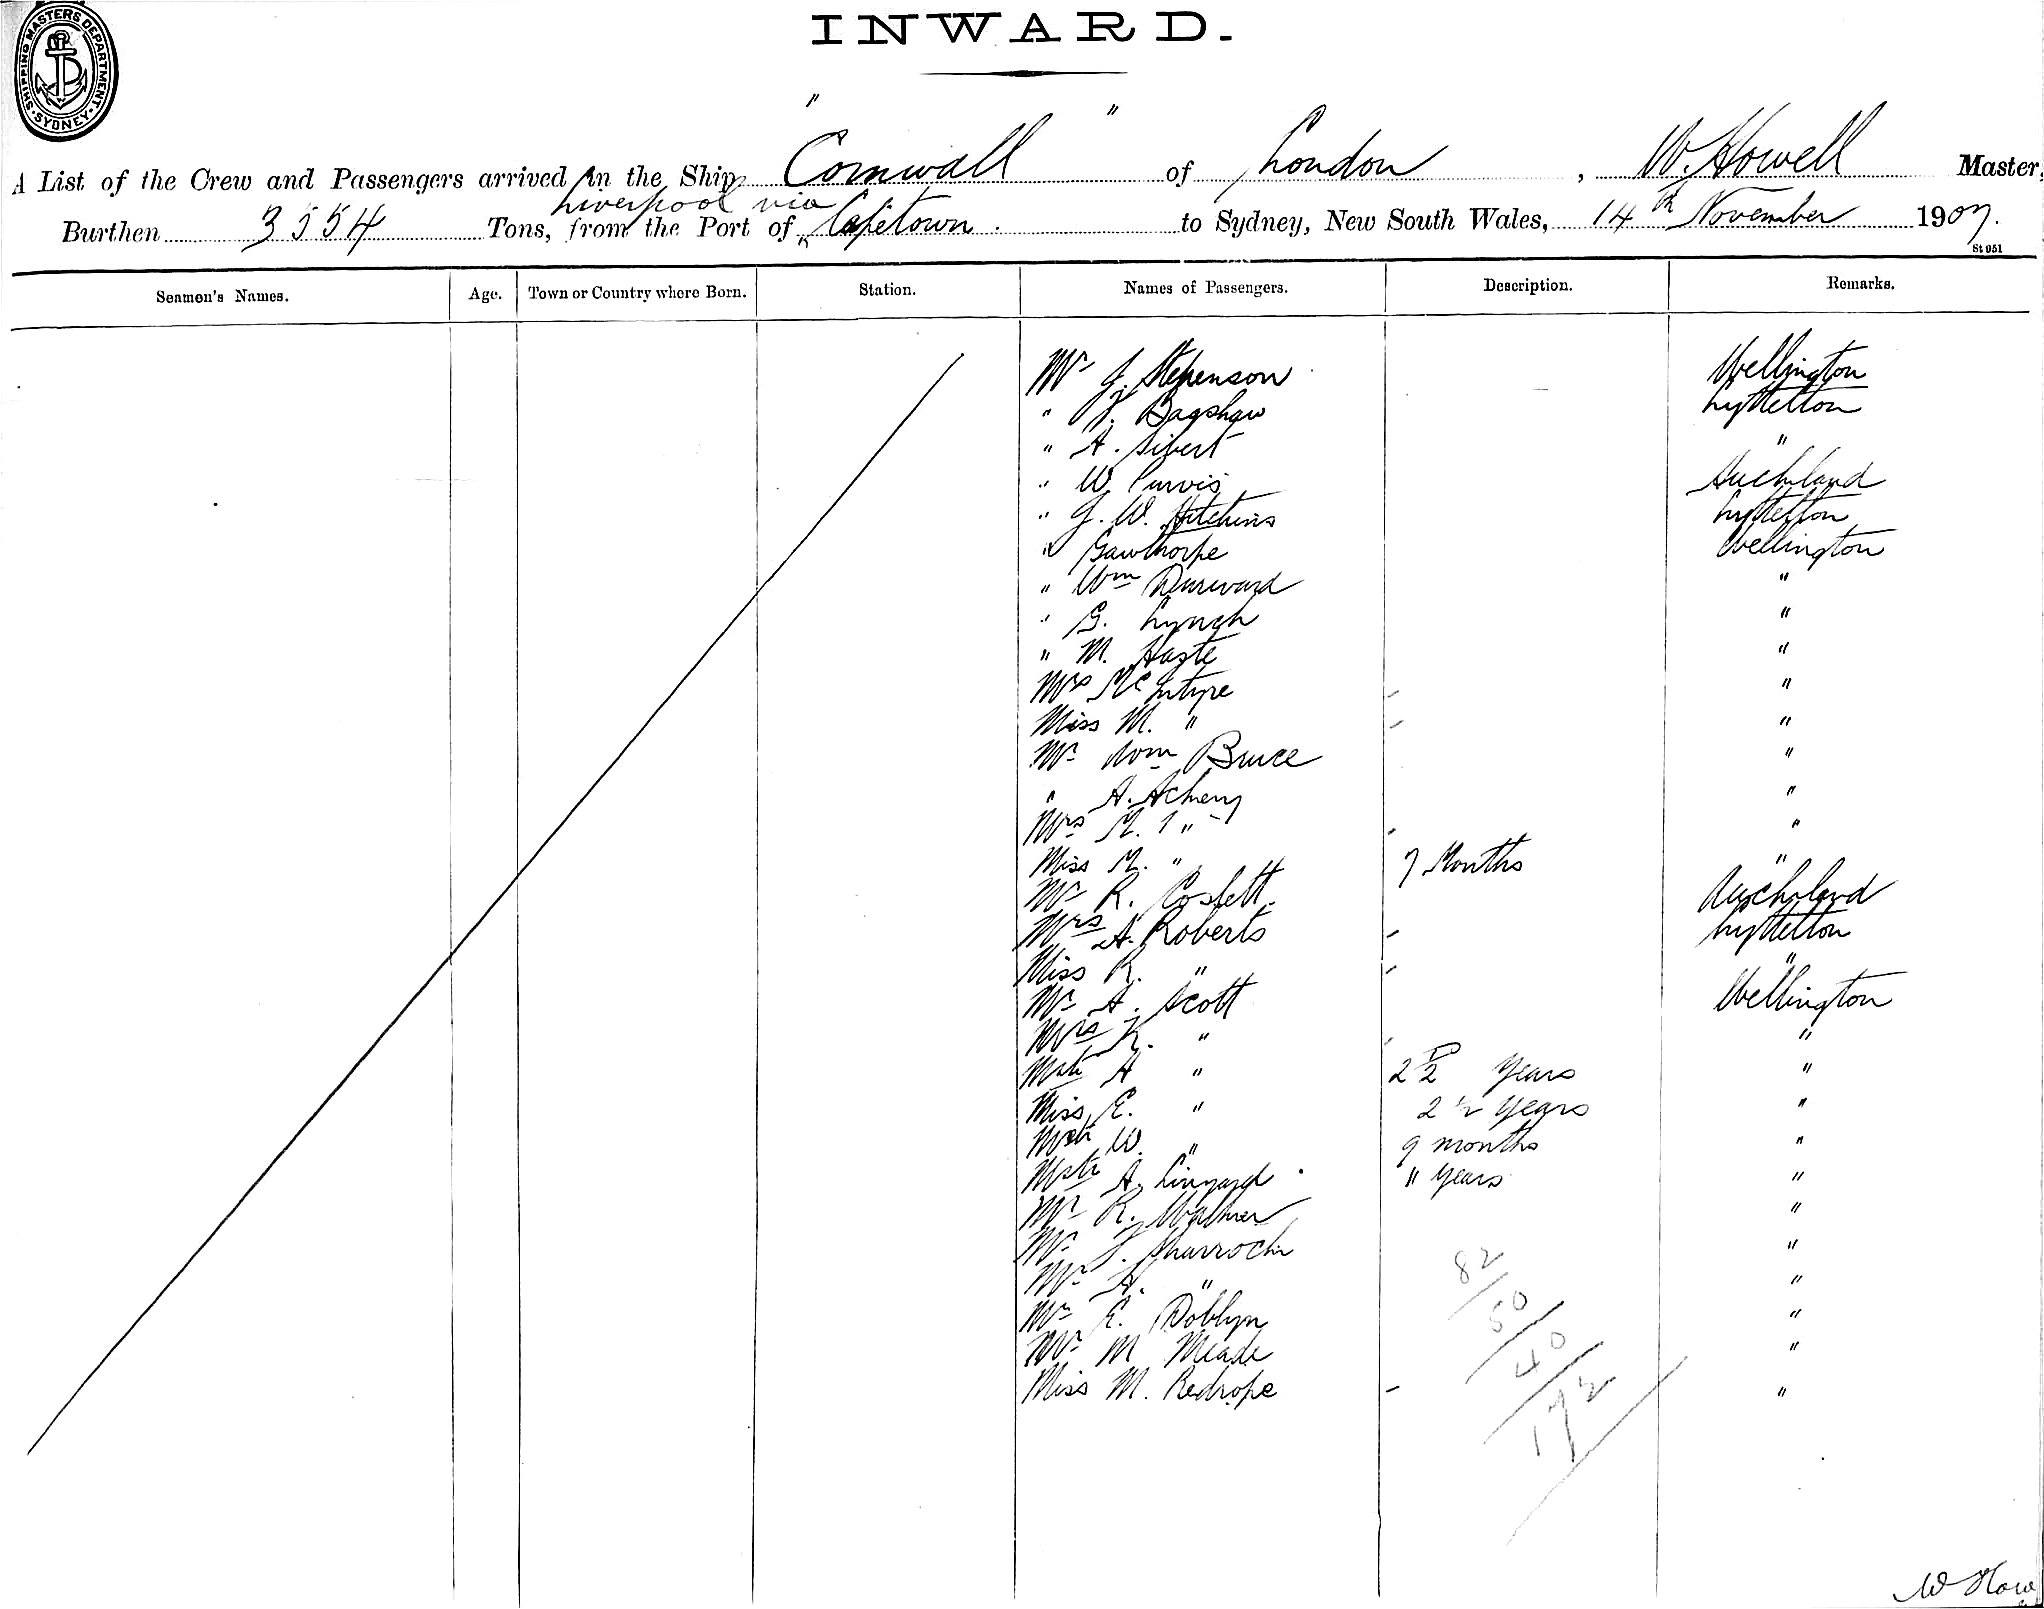 SHIPPING MASTERS DEPARTMENT · SYDNEY ·
INWARD.
A List of the Crew and Passengers arrived in the Ship "Cornwall" of London, W. Howell Master,
Liverpool via
Burthen 3554 Tons, from the Port of Capetown. to Sydney, New South Wales, 14th November 1907.
St 951
Seamen's Names. Age. Town or Country where Born. Station. Names of Passengers. Description. Remarks.
Mr J. Stepenson Wellington
" J. Bagshaw Lyttelton
" A. Sibert "
" W. Purvis Auckland
" G. W. Hitchins Lyttelton
" Gawthorpe Wellington
" Wm Durward "
" G. Lynch "
" M. Haste "
Mrs McIntyre "
Miss M. " "
Mr Wm Bruce "
" A. Acheny "
Mrs M. " "
Miss M. " 7 Months "
Mr R. Coslett. Auckland
Mrs A. Roberts Lyttelton
Miss R. " "
Mr A. Scott Wellington
Mrs K. " "
Mstr A " 2 Years "
Miss E. " 2 1/2 Years "
Mstr W. " 9 months "
Mstr A. Linyard 11 Years "
Mr R. Walmer "
Mr J. Sharrock "
Mr A. " "
Mr E. Doblyn "
Mr M Meade "
Miss M. Redrope "
82
50
40
172
W How